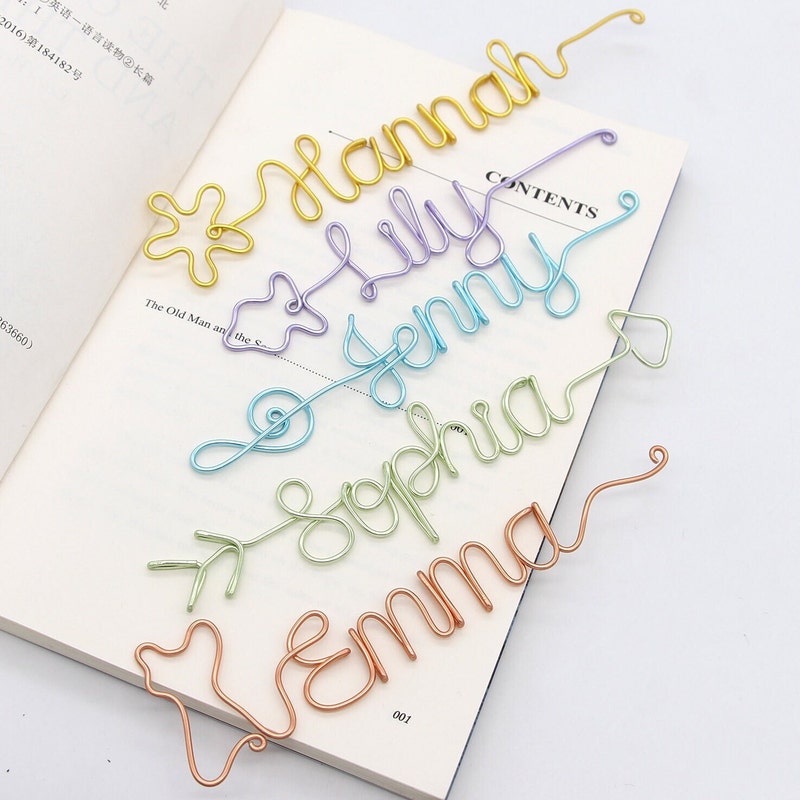 北
①英语－语言读物②长篇
: I
2016)第184182号
63660)
CONTENTS
The Old Man and the Sea
001
Hannah
Lily
Jenny
Sophia
Emma
001